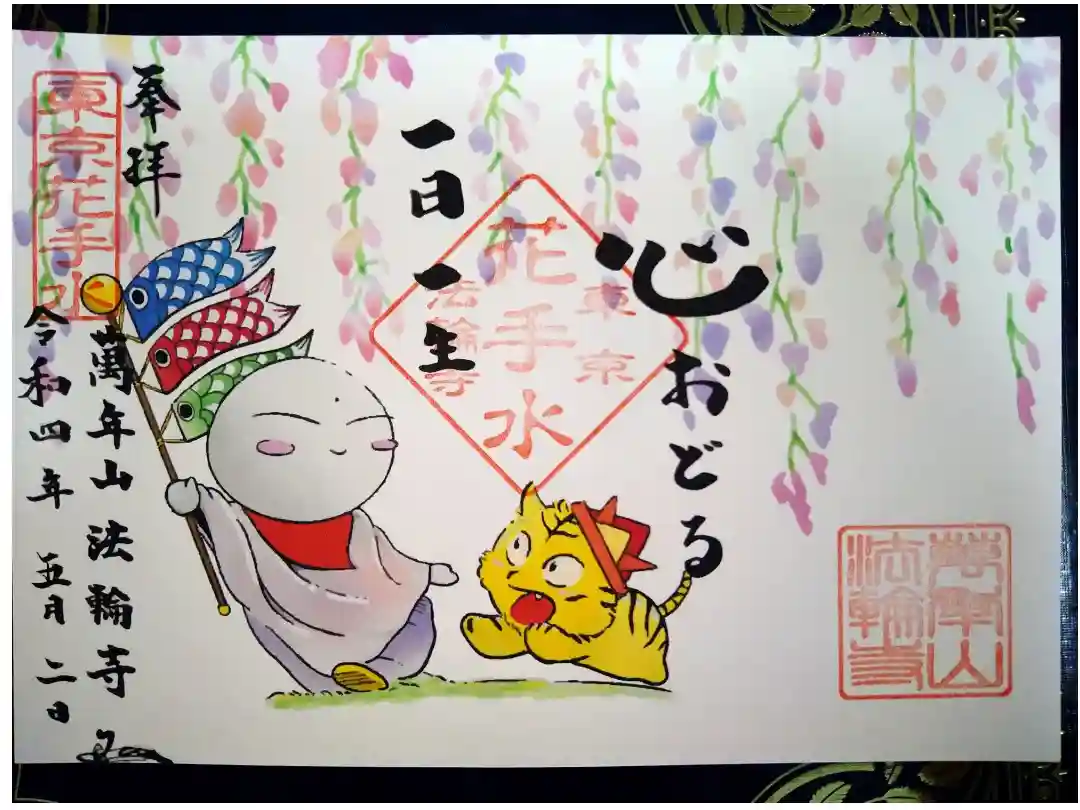 心おどる
東京
花手水
法輪寺
一日一生
奉拝
東京花手水
萬年山法輪寺
令和四年 五月 二日
萬年山
法輪寺